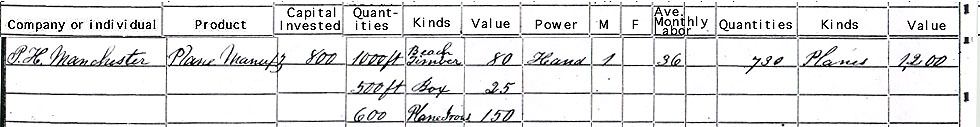 Company or individual Product Capital Invested Quant-ities Kinds Value Power M F Ave. Monthly Labor Quantities Kinds Value
P. H. Manchester Plane Manufg 800 1000 ft Beach Timber 80 Hand 1 36 730 Planes 1,200
500 ft Box 25
600 Plane Irons 150